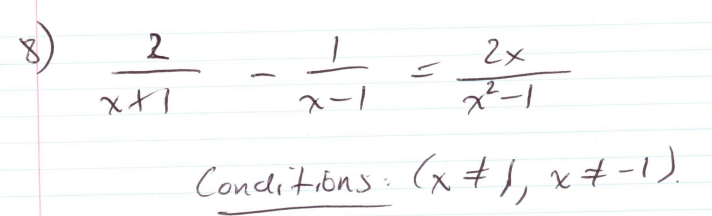 8) 2/(x+1) - 1/(x-1) = 2x/(x²-1)
Conditions: (x ≠ 1, x ≠ -1).